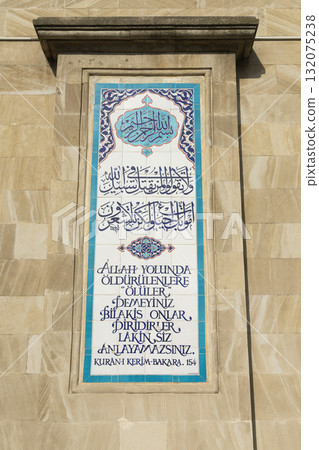 بسم الله الرحمن الرحيم
ولا تقولوا لمن يقتل في سبيل الله
اموات بل احياء ولكن لا تشعرون
ALLAH YOLUNDA
ÖLDÜRÜLENLERE
"ÖLÜLER"
DEMEYİNİZ
BİLAKİS ONLAR
DİRİDİRLER
LAKİN SİZ
ANLAYAMAZSINIZ.
KURAN-I KERİM-BAKARA. 154
PIXTA
132075238